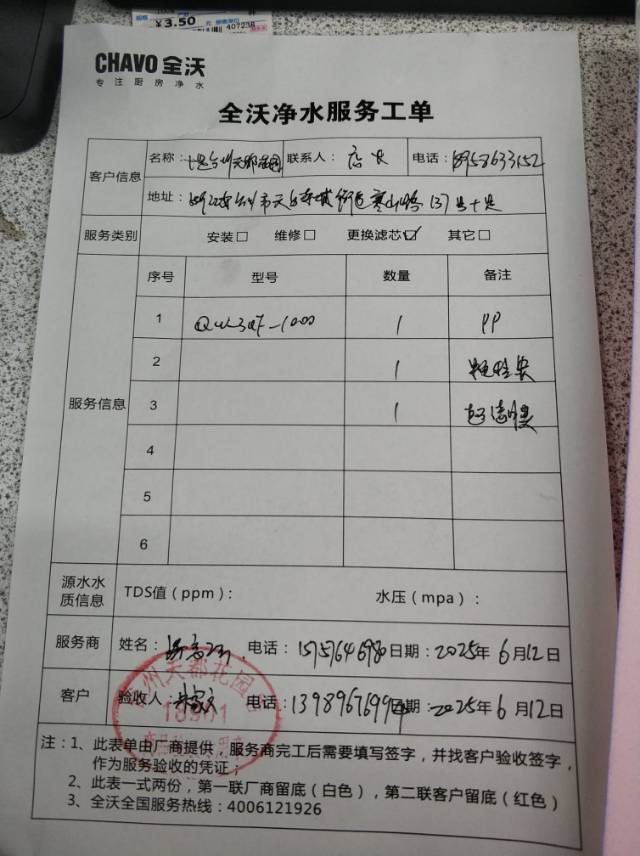 ¥3.50
CHAVO全沃
专注厨房净水
全沃净水服务工单
客户信息 名称： 联系人：店长 电话：18958633152
地址：浙江省台州市天台赤城街道寒山路137号
服务类别 安装□ 维修□ 更换滤芯☑ 其它□
服务信息 序号 型号 数量 备注
1 1 PP
2 1
3 1
4
5
6
源水水质信息 TDS值（ppm）： 水压（mpa）：
服务商 姓名： 电话： 日期：2025年6月12日
客户 验收人： 电话： 日期：2025年6月12日
州天都花园
注：1、此表单由厂商提供，服务商完工后需要填写签字，并找客户验收签字，
作为服务验收的凭证；
2、此表一式两份，第一联厂商留底（白色），第二联客户留底（红色）
3、全沃全国服务热线：4006121926